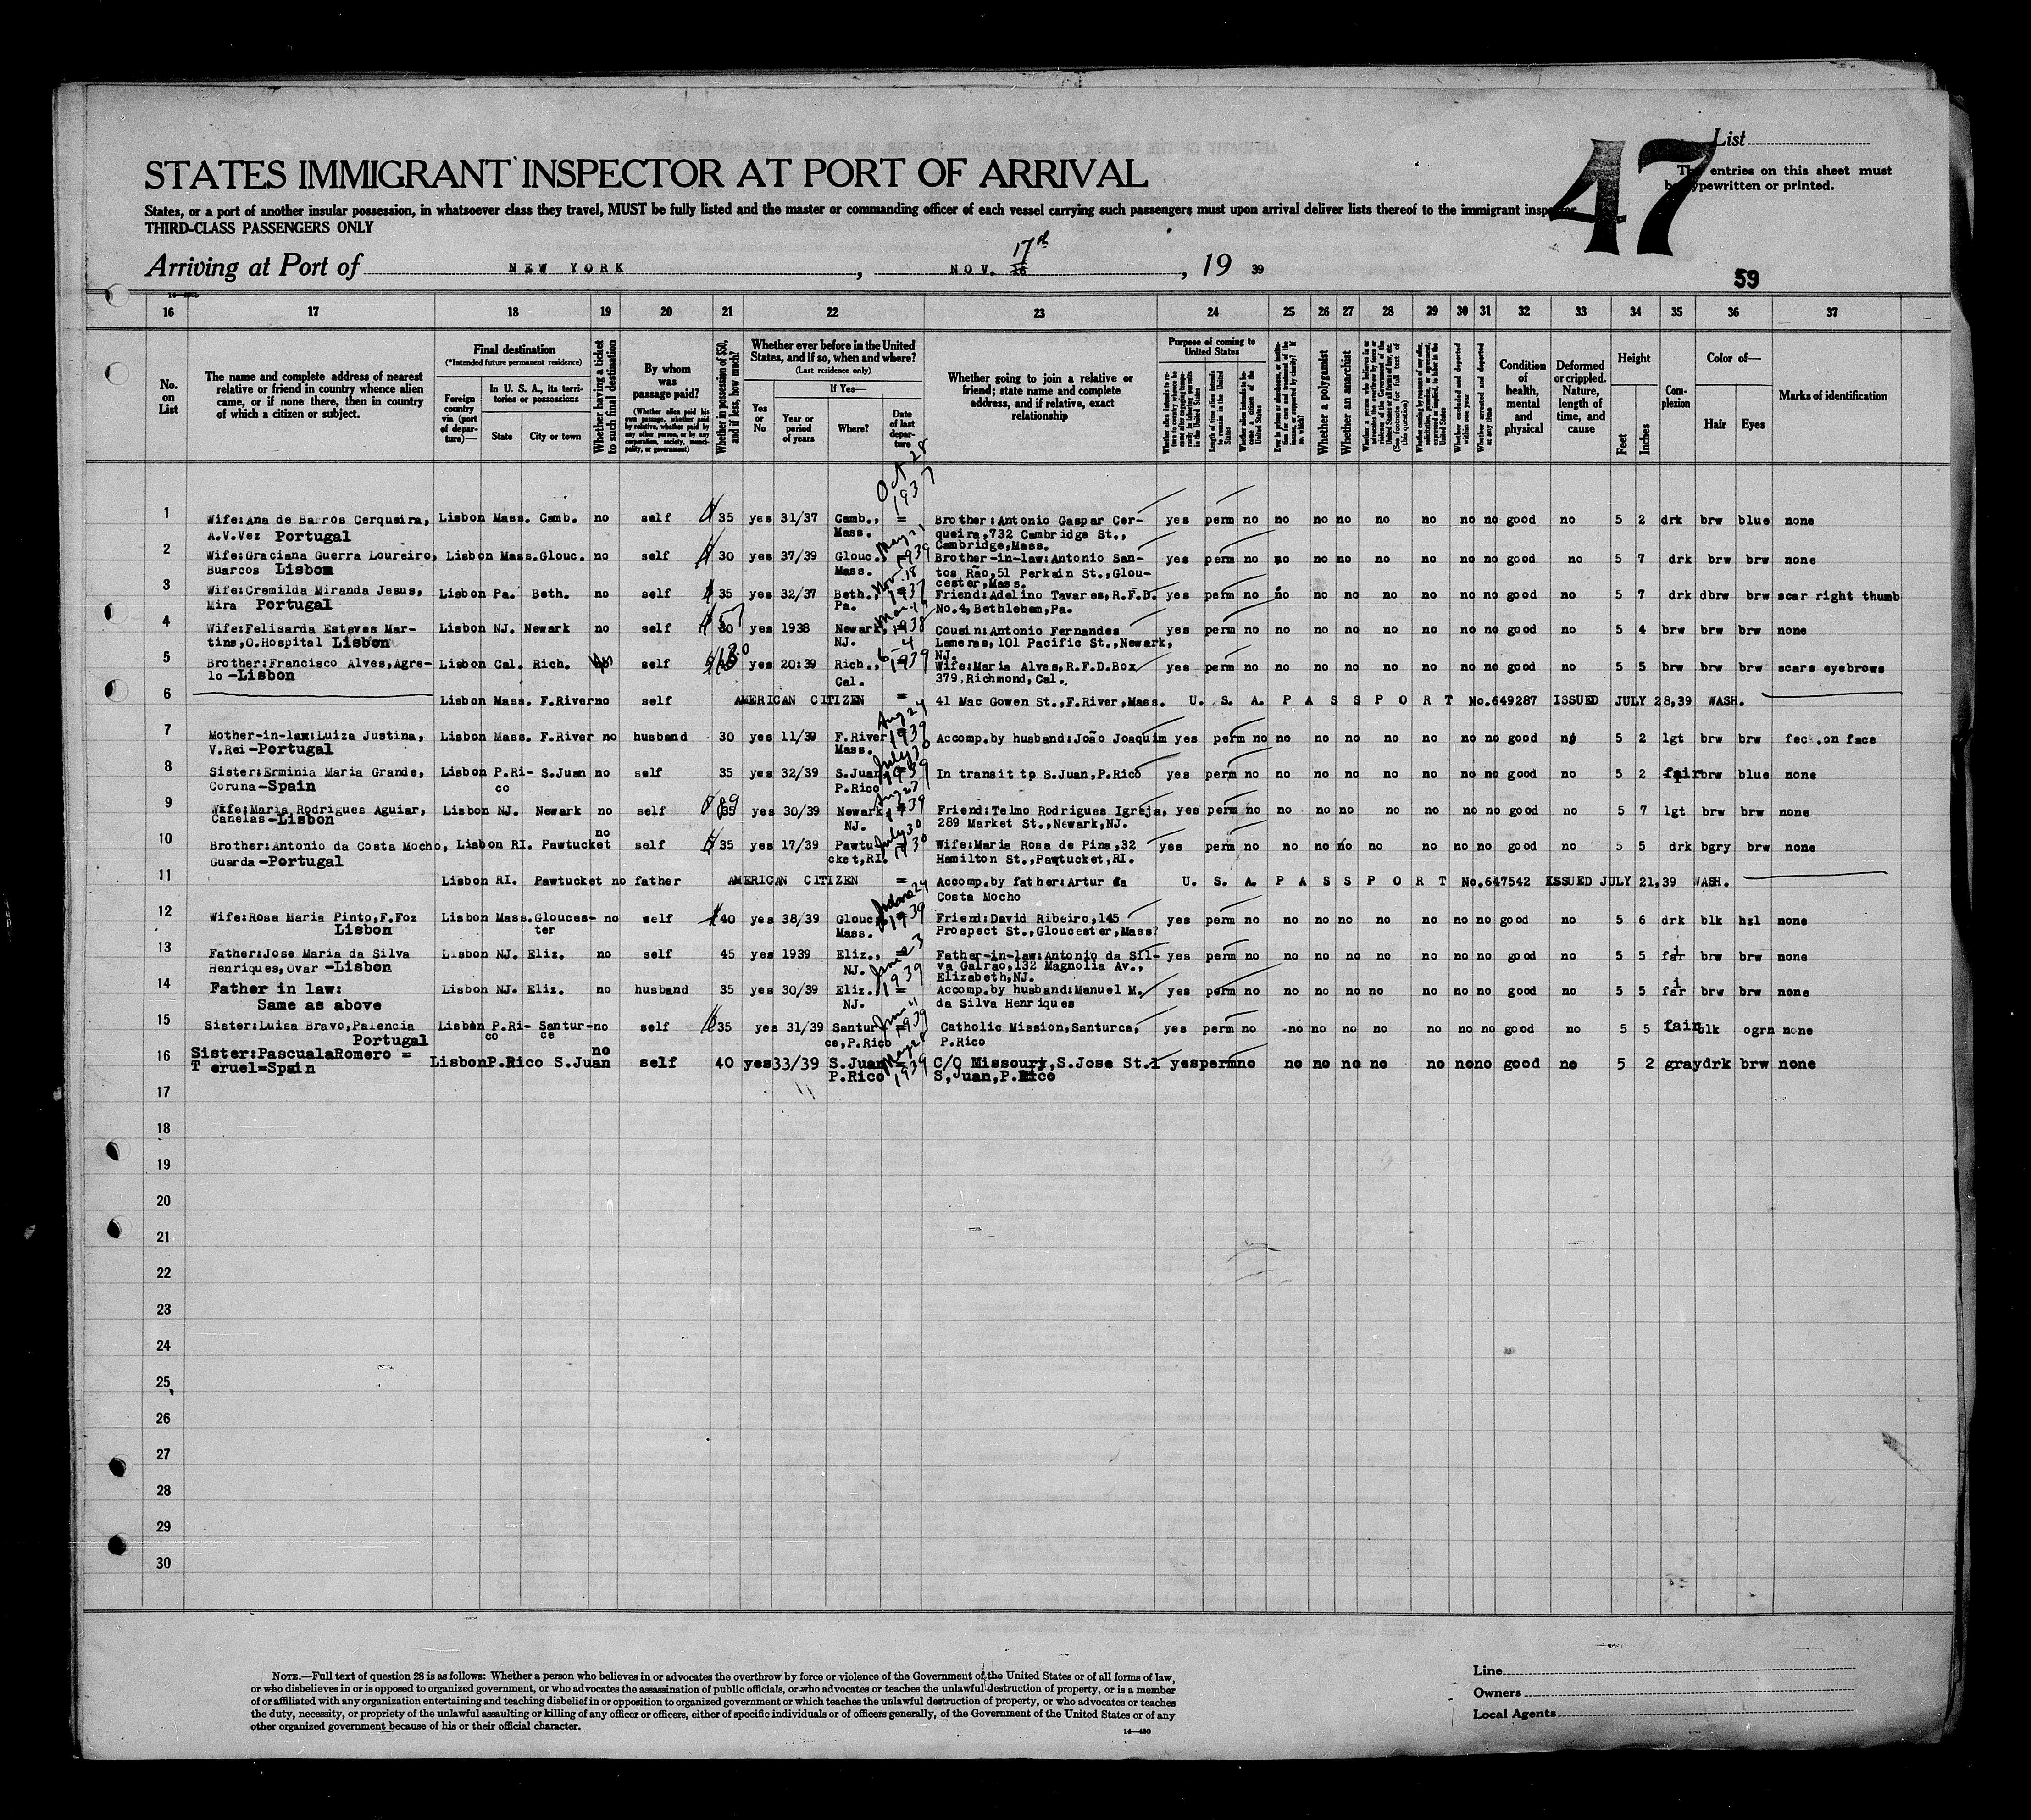 List
47
The entries on this sheet must
be typewritten or printed.
STATES IMMIGRANT INSPECTOR AT PORT OF ARRIVAL
States, or a port of another insular possession, in whatsoever class they travel, MUST be fully listed and the master or commanding officer of each vessel carrying such passengers must upon arrival deliver lists thereof to the immigrant inspector
THIRD-CLASS PASSENGERS ONLY
Arriving at Port of NEW YORK, NOV. 17th 16, 19 39
59
16 17 18 19 20 21 22 23 24 25 26 27 28 29 30 31 32 33 34 35 36 37
No. on List
The name and complete address of nearest relative or friend in country whence alien came, or if none there, then in country of which a citizen or subject.
Final destination
(*Intended future permanent residence)
Foreign country via (port of departure)—
In U. S. A., its territories or possessions
State
City or town
Whether having a ticket to such final destination
By whom was passage paid?
(Whether alien paid his own passage, whether paid by relative, whether paid by any other person, or by any corporation, society, municipality, or government)
Whether in possession of $50, and if less, how much?
Whether ever before in the United States, and if so, when and where?
(Last residence only)
Yes or No
If Yes—
Year or period of years
Where?
Date of last departure
Whether going to join a relative or friend; state name and complete address, and if relative, exact relationship
Purpose of coming to United States
Length of time alien intends to remain in the United States
Whether alien intends to become a citizen of the United States
Whether a polygamist
Whether an anarchist
Whether excluded and deported within one year
Whether arrested and deported at any time
Condition of health, mental and physical
Deformed or crippled. Nature, length of time, and cause
Height
Feet
Inches
Complexion
Color of—
Hair
Eyes
Marks of identification
Oct 28 1937
1 Wife:Ana de Barros Cerqueira, Lisbon Mass. Camb. no self 35 yes 31/37 Camb., = Brother:Antonio Gaspar Cer- yes perm no no no no no no no no good no 5 2 drk brw blue none
A.V.Vez Portugal Mass. queira,732 Cambridge St.,
Cambridge,Mass.
May 21 1939
2 Wife:Graciana Guerra Loureiro, Lisbon Mass.Glouc. no self 30 yes 37/39 Glouc. Brother-in-law:Antonio San- yes perm no no no no no no no no good no 5 7 drk brw brw none
Buarcos Lisbon Mass. tos Rão,51 Perkain St.,Glou-
cester,Mass.
Nov. 18 1937
3 Wife:Cremilda Miranda Jesus, Lisbon Pa. Beth. no self 35 yes 32/37 Beth., Friend:Adelino Tavares,R.F.D. yes perm no no no no no no no no good no 5 7 drk dbrw brw scar right thumb
Mira Portugal Pa. No.4,Bethlehem,Pa.
1938
4 Wife:Felisarda Esteves Mar- Lisbon NJ. Newark no self 30 yes 1938 Newark, Cousin:Antonio Fernandes yes perm no no no no no no no no good no 5 4 brw brw brw none
tins,O.Hospital Lisbon NJ. Lameras,101 Pacific St.,Newark,
NJ.
6-4 1939
5 Brother:Francisco Alves,Agre- Lisbon Cal. Rich. self yes 20:39 Rich., Wife:Maria Alves,R.F.D.Box yes perm no no no no no no no no good no 5 5 brw brw brw scars eyebrows
lo -Lisbon Cal. 379,Richmond,Cal.
6 Lisbon Mass. F.River no self AMERICAN CITIZEN = 41 Mac Gowen St.,F.River,Mass. U. S. A. P A S S P O R T No.649287 ISSUED JULY 28,39 WASH.
Aug 24 1939
7 Mother-in-law:Luiza Justina, Lisbon Mass. F.River no husband 30 yes 11/39 F.River Accomp.by husband:João Joaquim yes perm no no no no no no no no good no 5 2 lgt brw brw on face
V.Rei -Portugal Mass.
July 30 1939
8 Sister:Erminia Maria Grande, Lisbon P.Ri- S.Juan no self 35 yes 32/39 S.Juan In transit to S.Juan,P.Rico yes perm no no no no no no no no good no 5 2 fair brw blue none
Coruna-Spain co P.Rico
9 Wife:Maria Rodrigues Aguiar, Lisbon NJ. Newark no self 35 yes 30/39 Newark Friend:Telmo Rodrigues Igreja, yes perm no no no no no no no no good no 5 7 lgt brw brw none
Canelas-Lisbon NJ. 289 Market St.,Newark,NJ.
July 30
10 Brother:Antonio da Costa Mocho, Lisbon RI. Pawtucket no self 35 yes 17/39 Pawtu- Wife:Maria Rosa de Pina,32 yes perm no no no no no no no no good no 5 5 drk bgry brw none
Guarda-Portugal cket,RI. Hamilton St.,Pawtucket,RI.
11 Lisbon RI. Pawtucket no father AMERICAN CITIZEN = Accomp.by father:Artur da U. S. A. P A S S P O R T No.647542 ISSUED JULY 21,39 WASH.
Costa Mocho
12 Wife:Rosa Maria Pinto,F.Foz Lisbon Mass.Glouces- no self 40 yes 38/39 Glouc. Friend:David Ribeiro,145 yes perm no no no no no no no no good no 5 6 drk blk hzl none
Lisbon ter Mass. Prospect St.,Gloucester,Mass.
13 Father:Jose Maria da Silva Lisbon NJ. Eliz. no self 45 yes 1939 Eliz., = Father-in-law:Antonio da Sil- yes perm no no no no no no no no good no 5 5 fair brw brw none
Henriques,Ovar -Lisbon NJ. va Galrao,132 Magnolia Av.,
Elizabeth,NJ.
June 3 1939
14 Father in law: Lisbon NJ. Eliz. no husband 35 yes 30/39 Eliz. = Accomp.by husband:Manuel M. yes perm no no no no no no no no good no 5 5 fair brw brw none
Same as above NJ. da Silva Henriques
15 Sister:Luisa Bravo,Palencia Lisbon P.Ri- Santur- no self 35 yes 31/39 Santur- Catholic Mission,Santurce, yes perm no no no no no no no no good no 5 5 fair blk ogrn none
Portugal co ce ce,P.Rico P.Rico
16 Sister:PascualaRomero = Lisbon P.Rico S.Juan no self 40 yes 33/39 S.Juan C/O Missoury,S.Jose St.1 yes perm no no no no no no no no good no 5 2 gray drk brw none
T eruel=Spain P.Rico 1939 S,Juan,P.Rico
17
18
19
20
21
22
23
24
25
26
27
28
29
30
NOTE.—Full text of question 28 is as follows: Whether a person who believes in or advocates the overthrow by force or violence of the Government of the United States or of all forms of law,
or who disbelieves in or is opposed to organized government, or who advocates the assassination of public officials, or who advocates or teaches the unlawful destruction of property, or is a member
of or affiliated with any organization entertaining and teaching disbelief in or opposition to organized government or which teaches the unlawful destruction of property, or who advocates or teaches
the duty, necessity, or propriety of the unlawful assaulting or killing of any officer or officers, either of specific individuals or of officers generally, of the Government of the United States or of any
other organized government because of his or their official character.
14—430
Line
Owners
Local Agents